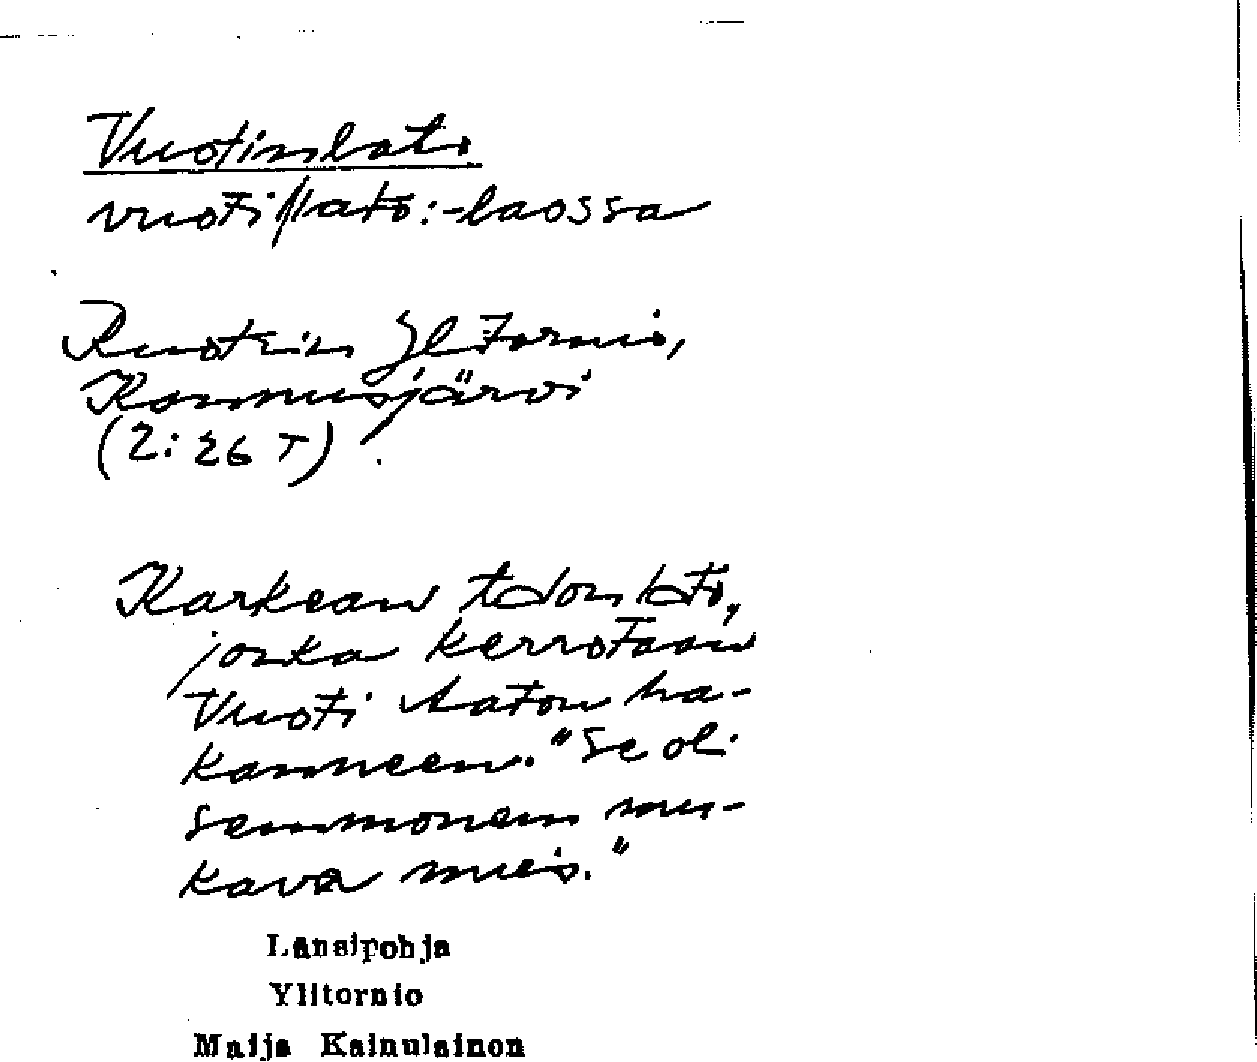 Vuotinlato
vuotillato: -laossa
Ruotsin Ylitornio,
Konnusjärvi
(2: 26 T)
Karkean talon lato,
jonka kerrotaan
Vuoti Aaton ha-
kanneen. "Se oli
semmonen mu-
kava mies."
Länsipohja
Ylitornio
Maija Kainulainen